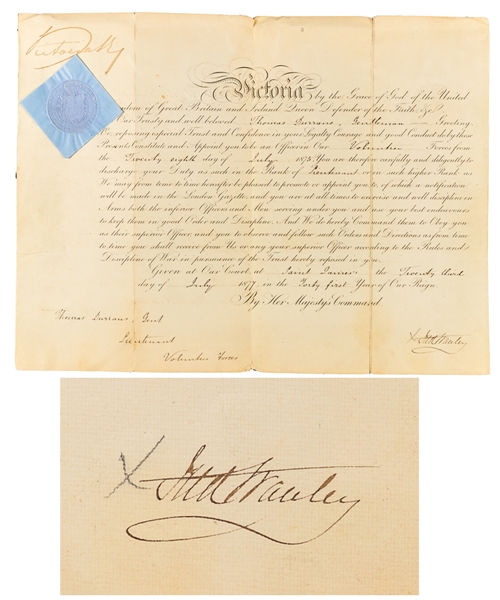 Victoria R
Victoria by the Grace of God of the United
Kingdom of Great Britain and Ireland Queen Defender of the Faith, &c.
To Our Trusty and well beloved Thomas Gentleman Greeting
We, reposing especial Trust and Confidence in your Loyalty Courage and good Conduct do by these
Presents Constitute and Appoint you to be an Officer in Our Volunteer Forces from
the Twenty eighth day of July 1875. You are therefore carefully and diligently to
discharge your Duty as such in the Rank of Lieutenant or in such higher Rank as
We may from time to time hereafter be pleased to promote or appoint you to, of which a notification
will be made in the London Gazette and you are at all times to exercise and well discipline in
Arms both the inferior Officers and Men serving under you and use your best endeavours
to keep them in good Order and Discipline. And We do hereby Command them to Obey you
as their superior Officer, and you to observe and follow such Orders and Directions as from time
to time you shall receive from Us or any your superior Officer according to the Rules and
Discipline of War in pursuance of the Trust hereby reposed in you.
Given at Our Court, at Saint James's the Twenty third
day of July 1877. in the Forty first Year of Our Reign.
By Her Majesty's Command
Thomas Gent
Lieutenant
Volunteer Forces
X
X